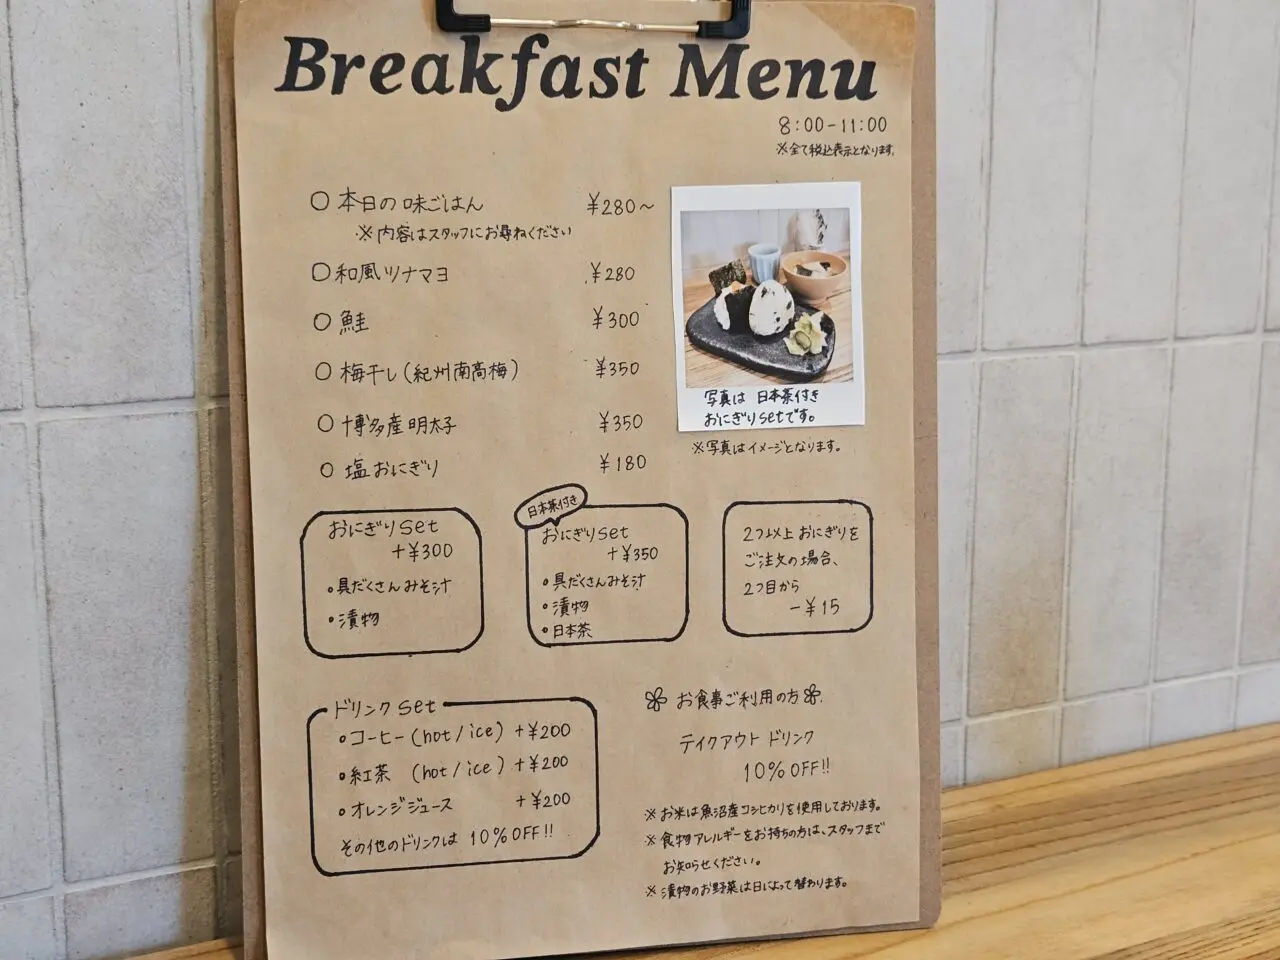 Breakfast Menu
8:00-11:00
※全て税込表示となります。
○ 本日の味ごはん ¥280〜
※内容はスタッフにお尋ねください
○ 和風ツナマヨ ¥280
○ 鮭 ¥300
○ 梅干し(紀州南高梅) ¥350
○ 博多産明太子 ¥350
○ 塩おにぎり ¥180
写真は 日本茶付き
おにぎりsetです。
※写真はイメージとなります。
おにぎりset
+¥300
・具だくさんみそ汁
・漬物
日本茶付き
おにぎりset
+¥350
・具だくさんみそ汁
・漬物
・日本茶
2つ以上 おにぎりを
ご注文の場合、
2つ目から
-¥15
ドリンクset
・コーヒー(hot/ice) +¥200
・紅茶 (hot/ice) +¥200
・オレンジジュース +¥200
その他のドリンクは 10%OFF!!
お食事ご利用の方
テイクアウト ドリンク
10%OFF!!
※お米は魚沼産コシヒカリを使用しております。
※食物アレルギーをお持ちの方は、スタッフまで
お知らせください。
※漬物のお野菜は日によって替わります。